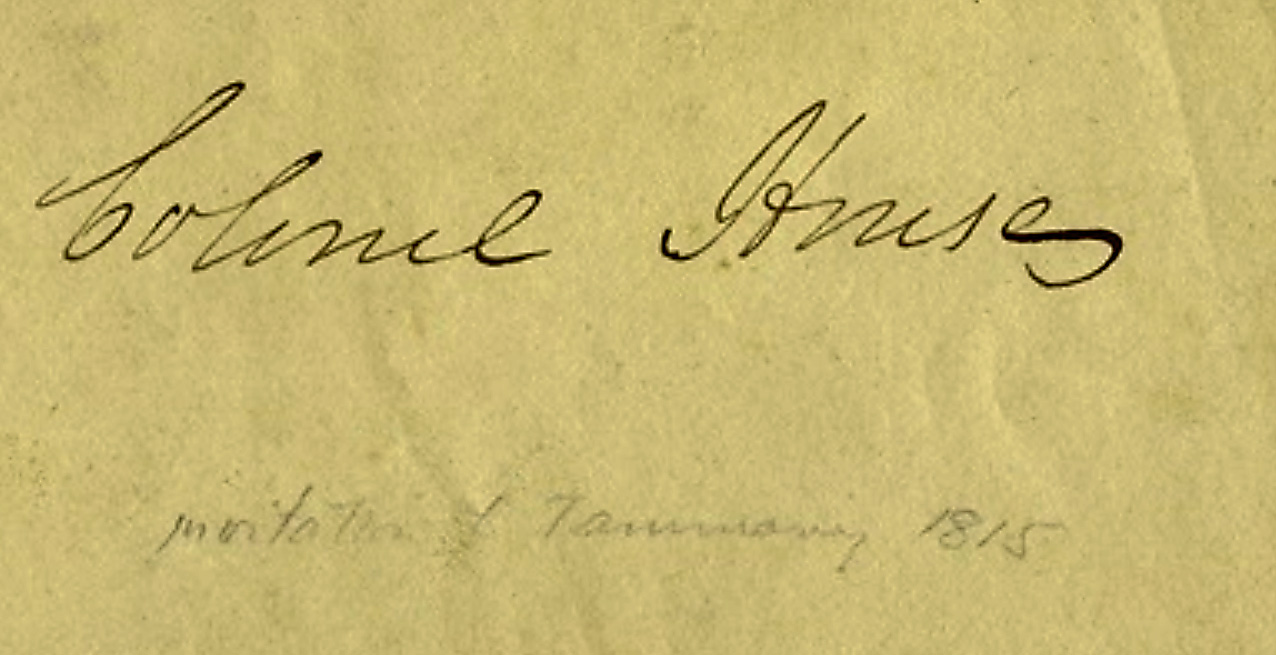 Colonel House
invitation of Tammany 1815